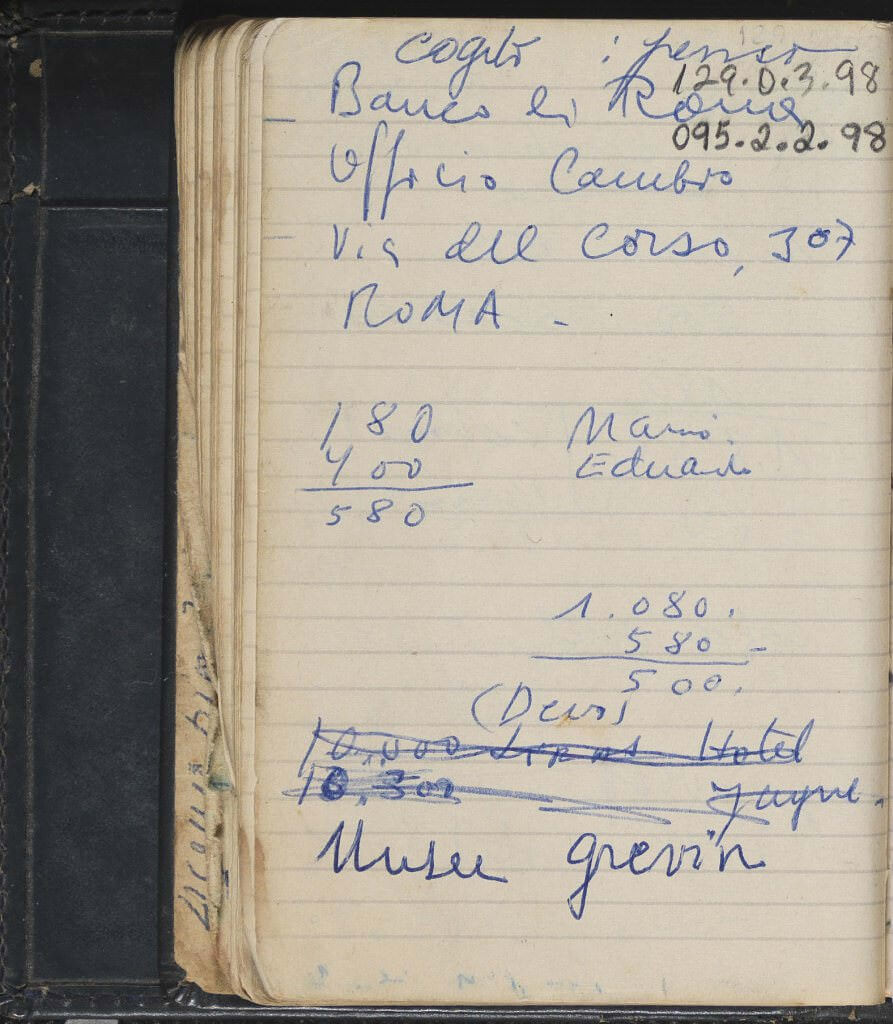 cogito :
129.0.3.98
- Banco di Roma
095.2.2.98
Ufficio Cambio
- Via del Corso, 307
ROMA -
180 Mario.
400 Eduardo
580
1.080.
580 -
500.
(Devo)
10.000 Liras Hotel
10.300
Musee grevin